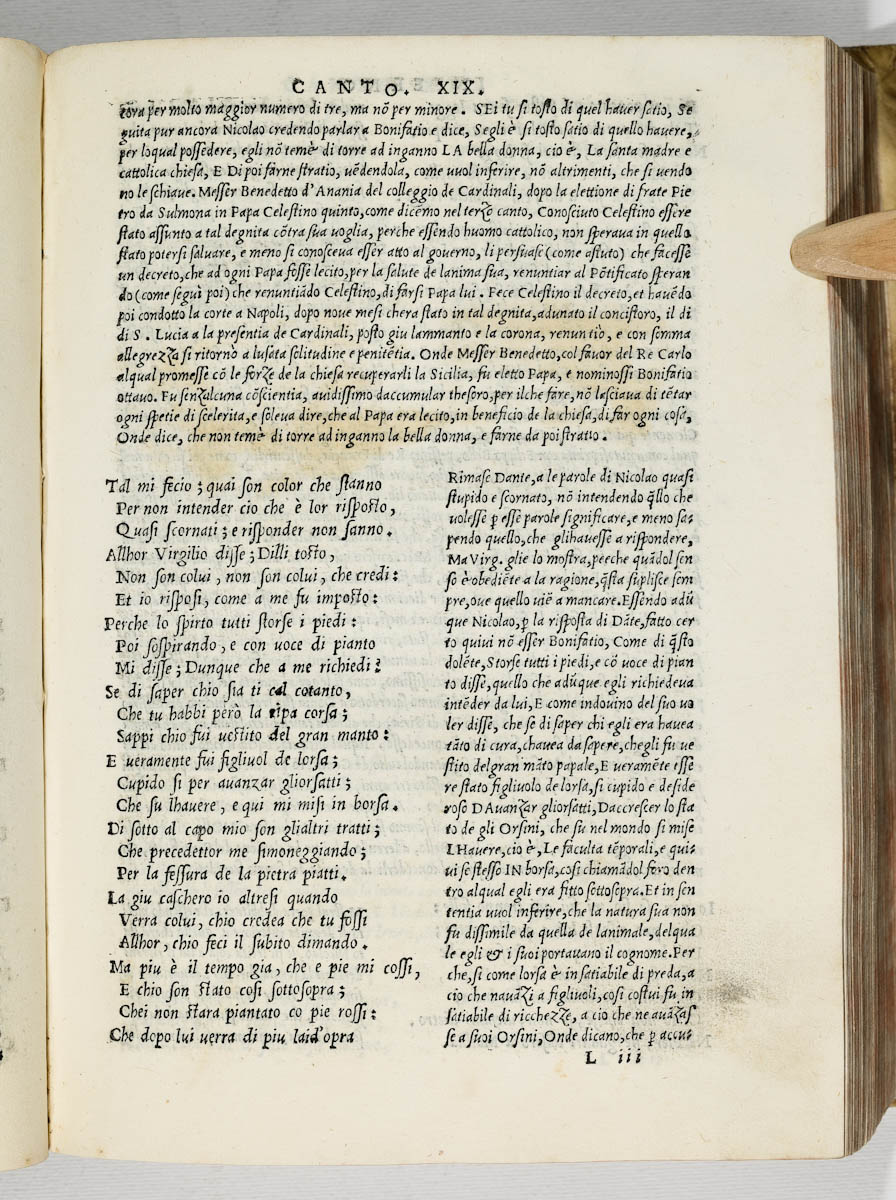 CANTO. XIX.
cora per molto maggior numero di tre, ma nõ per minore. SEi tu si tosto di quel haver satio, Se
guita pur ancora Nicolao credendo parlar a Bonifatio e dice, Se gli è si tosto satio di quello havere,
per loqual possédere, egli nõ temè di torre ad inganno LA bella donna, cio è, La santa madre e
cattolica chiesa, E Di poi farne stratio, uẽdendola, come uuol inferire, nõ altrimenti, che si uendo
no le schiaue. Messer Benedetto d'Anania del colleggio de Cardinali, dopo la elettione di frate Pie
tro da Sulmona in Papa Celestino quinto, come dicẽmo nel terzo canto, Conosciuto Celestino essere
stato assunto a tal degnita cõtra sua uoglia, perche essendo huomo cattolico, non speraua in quello
stato potersi saluare, e meno si conosceua esser atto al gouerno, li persuase (come astuto) che facesse
un decreto, che ad ogni Papa fosse lecito, per la salute de lanima sua, renuntiar al Põtificato speran
do (come seguì poi) che renuntiãdo Celestino, di farsi Papa lui. Fece Celestino il decreto, et hauẽdo
poi condotto la corte a Napoli, dopo noue mesi chera stato in tal degnita, adunato il concistoro, il di
di S. Lucia a la presentia de Cardinali, posto giu lammanto e la corona, renuntiò, e con somma
allegrezza si ritornò a lusata solitudine e penitẽtia. Onde Messer Benedetto, col fauor del Re Carlo
alqual promesse cõ le forze de la chiesa recuperarli la Sicilia, fu eletto Papa, e nominossi Bonifatio
ottauo. Fu senzalcuna cõscientia, auidissimo daccumular thesoro, per ilche fare, nõ lasciaua di tẽtar
ogni spetie di scelerita, e soleua dire, che al Papa era lecito, in beneficio de la chiesa, di far ogni cosa,
Onde dice, che non temè di torre ad inganno la bella donna, e farne da poi stratio.
Tal mi fecio; quai son color che stanno
Per non intender cio che è lor risposto,
Quasi scornati; e risponder non sanno.
Allhor Virgilio disse; Dilli tosto,
Non son colui, non son colui, che credi:
Et io risposi, come a me fu imposto:
Perche lo spirto tutti storse i piedi:
Poi sospirando, e con uoce di pianto
Mi disse; Dunque che a me richiedi?
Se di saper chio sia ti cal cotanto,
Che tu habbi però la ripa corsa;
Sappi chio fui uestito del gran manto:
E ueramente fui figliuol de lorsa;
Cupido si per auanzar gliorsatti;
Che su lhauere, e qui mi misi in borsa.
Di sotto al capo mio son glialtri tratti;
Che precedettor me simoneggiando;
Per la fessura de la pietra piatti.
La giu caschero io altresi quando
Verra colui, chio credea che tu fossi
Allhor, chio feci il subito dimando.
Ma piu è il tempo gia, che e pie mi cossi,
E chio son stato cosi sottosopra;
Chei non stara piantato co pie rossi:
Che dopo lui uerra di piu laid'opra
Rimase Dante, a le parole di Nicolao quasi
stupido e scornato, nõ intendendo q̃llo che
uolesse p̱ esse parole significare, e meno sa-
pendo quello, che glihauesse a rispondere,
Ma Virg. glie lo mostra, peeche quãdol sen
so è obediẽte a la ragione, q̃sta suplisce sem
pre, oue quello uiẽ a mancare. Essendo adũ
que Nicolao, p̱ la risposta di Dãte, fatto cer
to quiui nõ esser Bonifatio, Come di q̃sto
dolẽte, Storse tutti i piedi, e cõ uoce di pian
to disse, quello che adũque egli richiedeua
intẽder da lui, E come indouino del suo uo
ler disse, che se di saper chi egli era hauea
tãto di cura, chauea da sapere, chegli fu ue
stito del gran mãto papale, E ueramẽte esse
re stato figliuolo de lorsa, si cupido e deside
roso DAuanzar gliorsatti, Daccrescer lo sta
to de gli Orsini, che su nel mondo si mise
LHauere, cio è, Le faculta tẽporali, e qui-
ui se stesso IN borsa, cosi chiamãdol foro den
tro alqual egli era fitto sottosopra. Et in sen
tentia uuol inferire, che la natura sua non
fu dissimile da quella de lanimale, delqua
le egli & i suoi portauano il cognome. Per
che, si come lorsa è insatiabile di preda, a
cio che nauãzi a figliuoli, cosi costui fu in
satiabile di ricchezze, a cio che ne auãzas
se a suoi Orsini, Onde dicano, che p̱ accu-
L iii